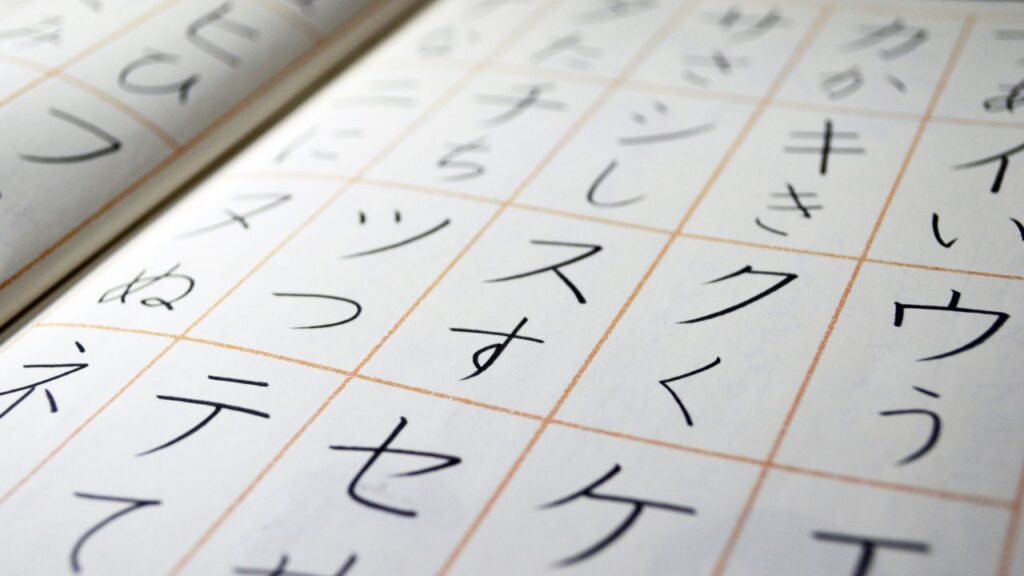 あ
イ
い
ウ
う
エ
カ
か
キ
き
ク
く
ケ
サ
さ
シ
し
ス
す
セ
せ
タ
た
チ
ち
ツ
つ
テ
て
な
ニ
に
ヌ
ぬ
ネ
ヒ
ひ
フ
み